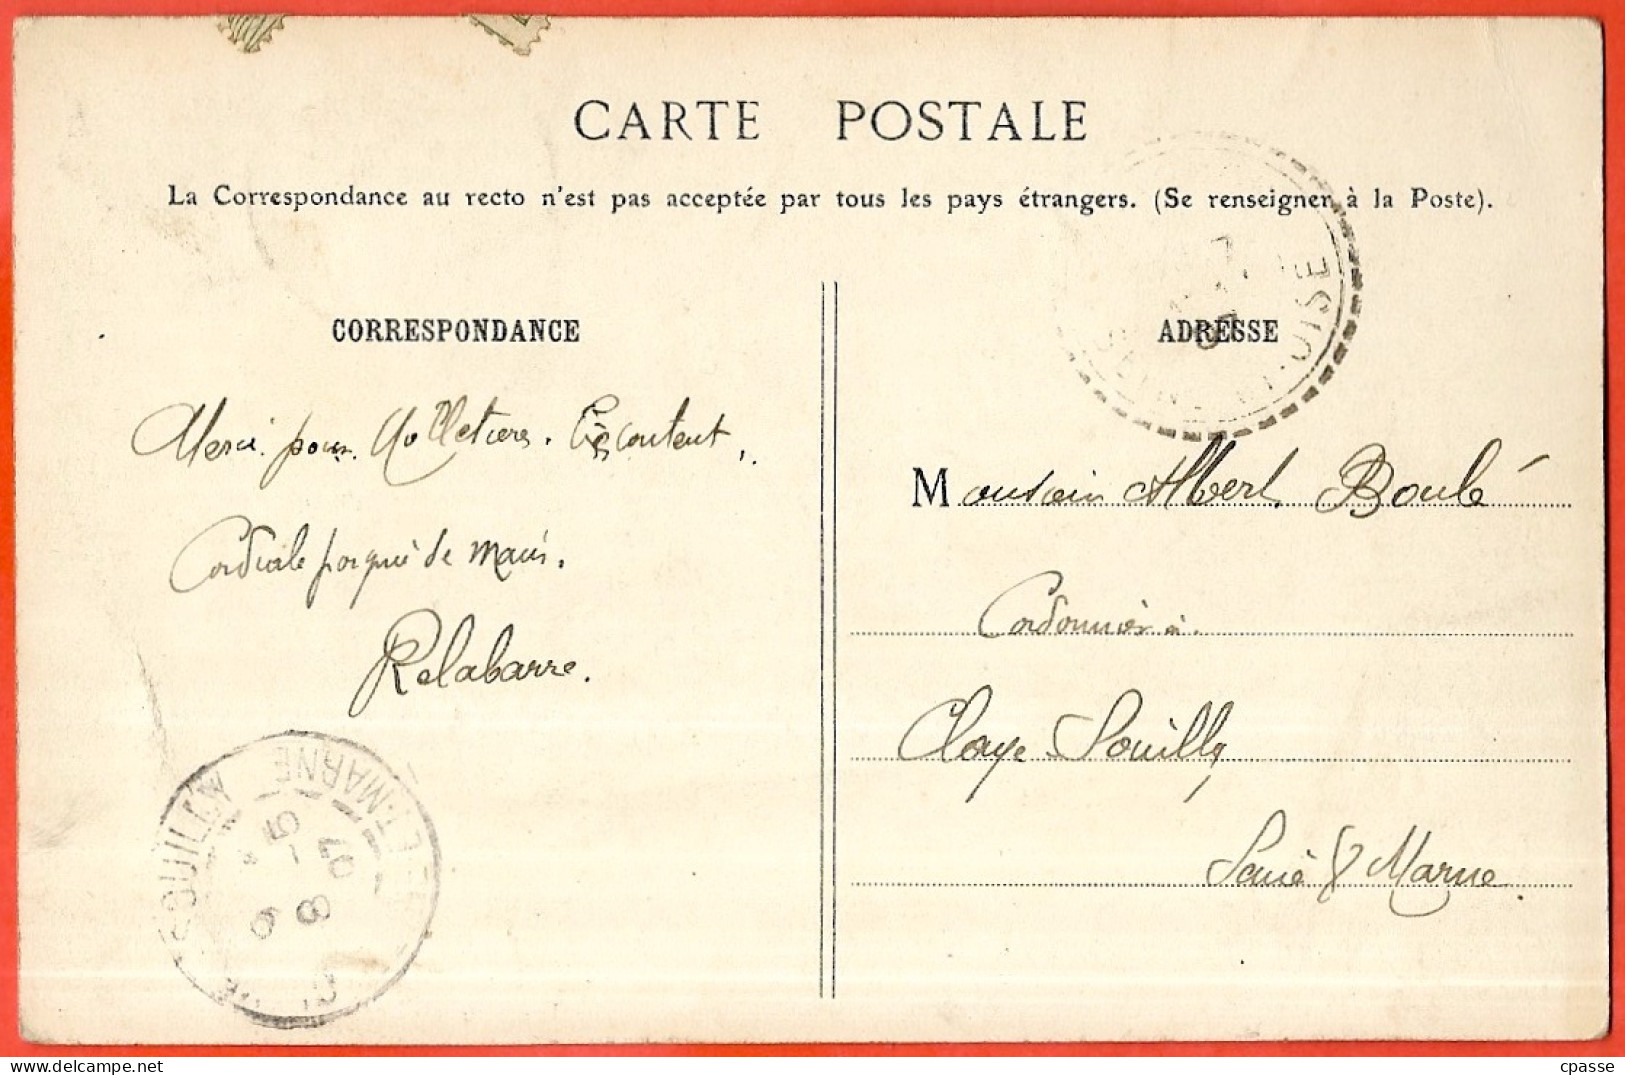 CARTE POSTALE
La Correspondance au recto n'est pas acceptée par tous les pays étrangers. (Se renseigner à la Poste).
CORRESPONDANCE
ADRESSE
Merci pour Molletières. Très content,
Cordiale poignée de mains.
Relabarre.
Monsieur Albert Boulé
Cordonnier à
Claye Souilly
Seine & Marne.
SEINE-ET-OISE
SOUILLY
ET-MARNE
cpasse